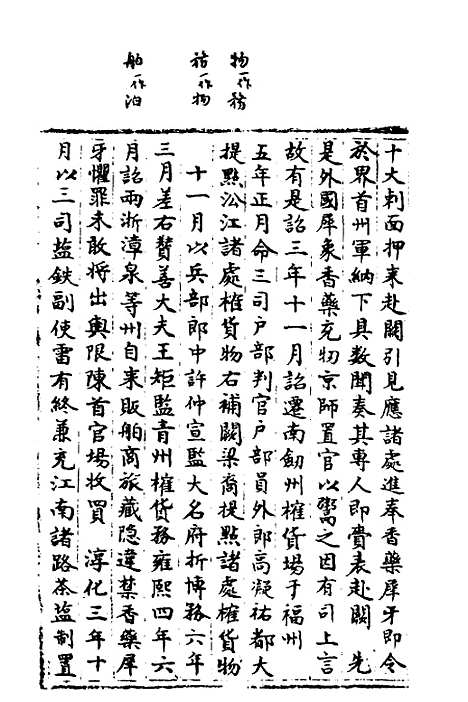 物一作務
務一作物
舶一作泊
十大刺面押來赴闕引見應諸處進奉香藥犀牙即令
於界首州軍納下具數聞奏其專人即賫表赴闕　先
是外國犀象香藥充牣京師置官以鬻之因有司上言
故有是詔三年十一月詔遷南劒州榷貨場于福州
五年正月命三司户部判官户部員外郎高凝祐都大
提點沿江諸處榷貨物右補闕梁裔提點諸處榷貨物
十一月以兵部郎中許仲宣監大名府折博務六年
三月差右贊善大夫王矩監青州榷貨務雍熙四年六
月詔兩浙漳泉等州自來販舶商旅藏隐違禁香藥犀
牙懼罪未敢將出與限陳首官場收買　淳化三年十
月以三司监鉄副使雷有終兼充江南諸路茶监制置